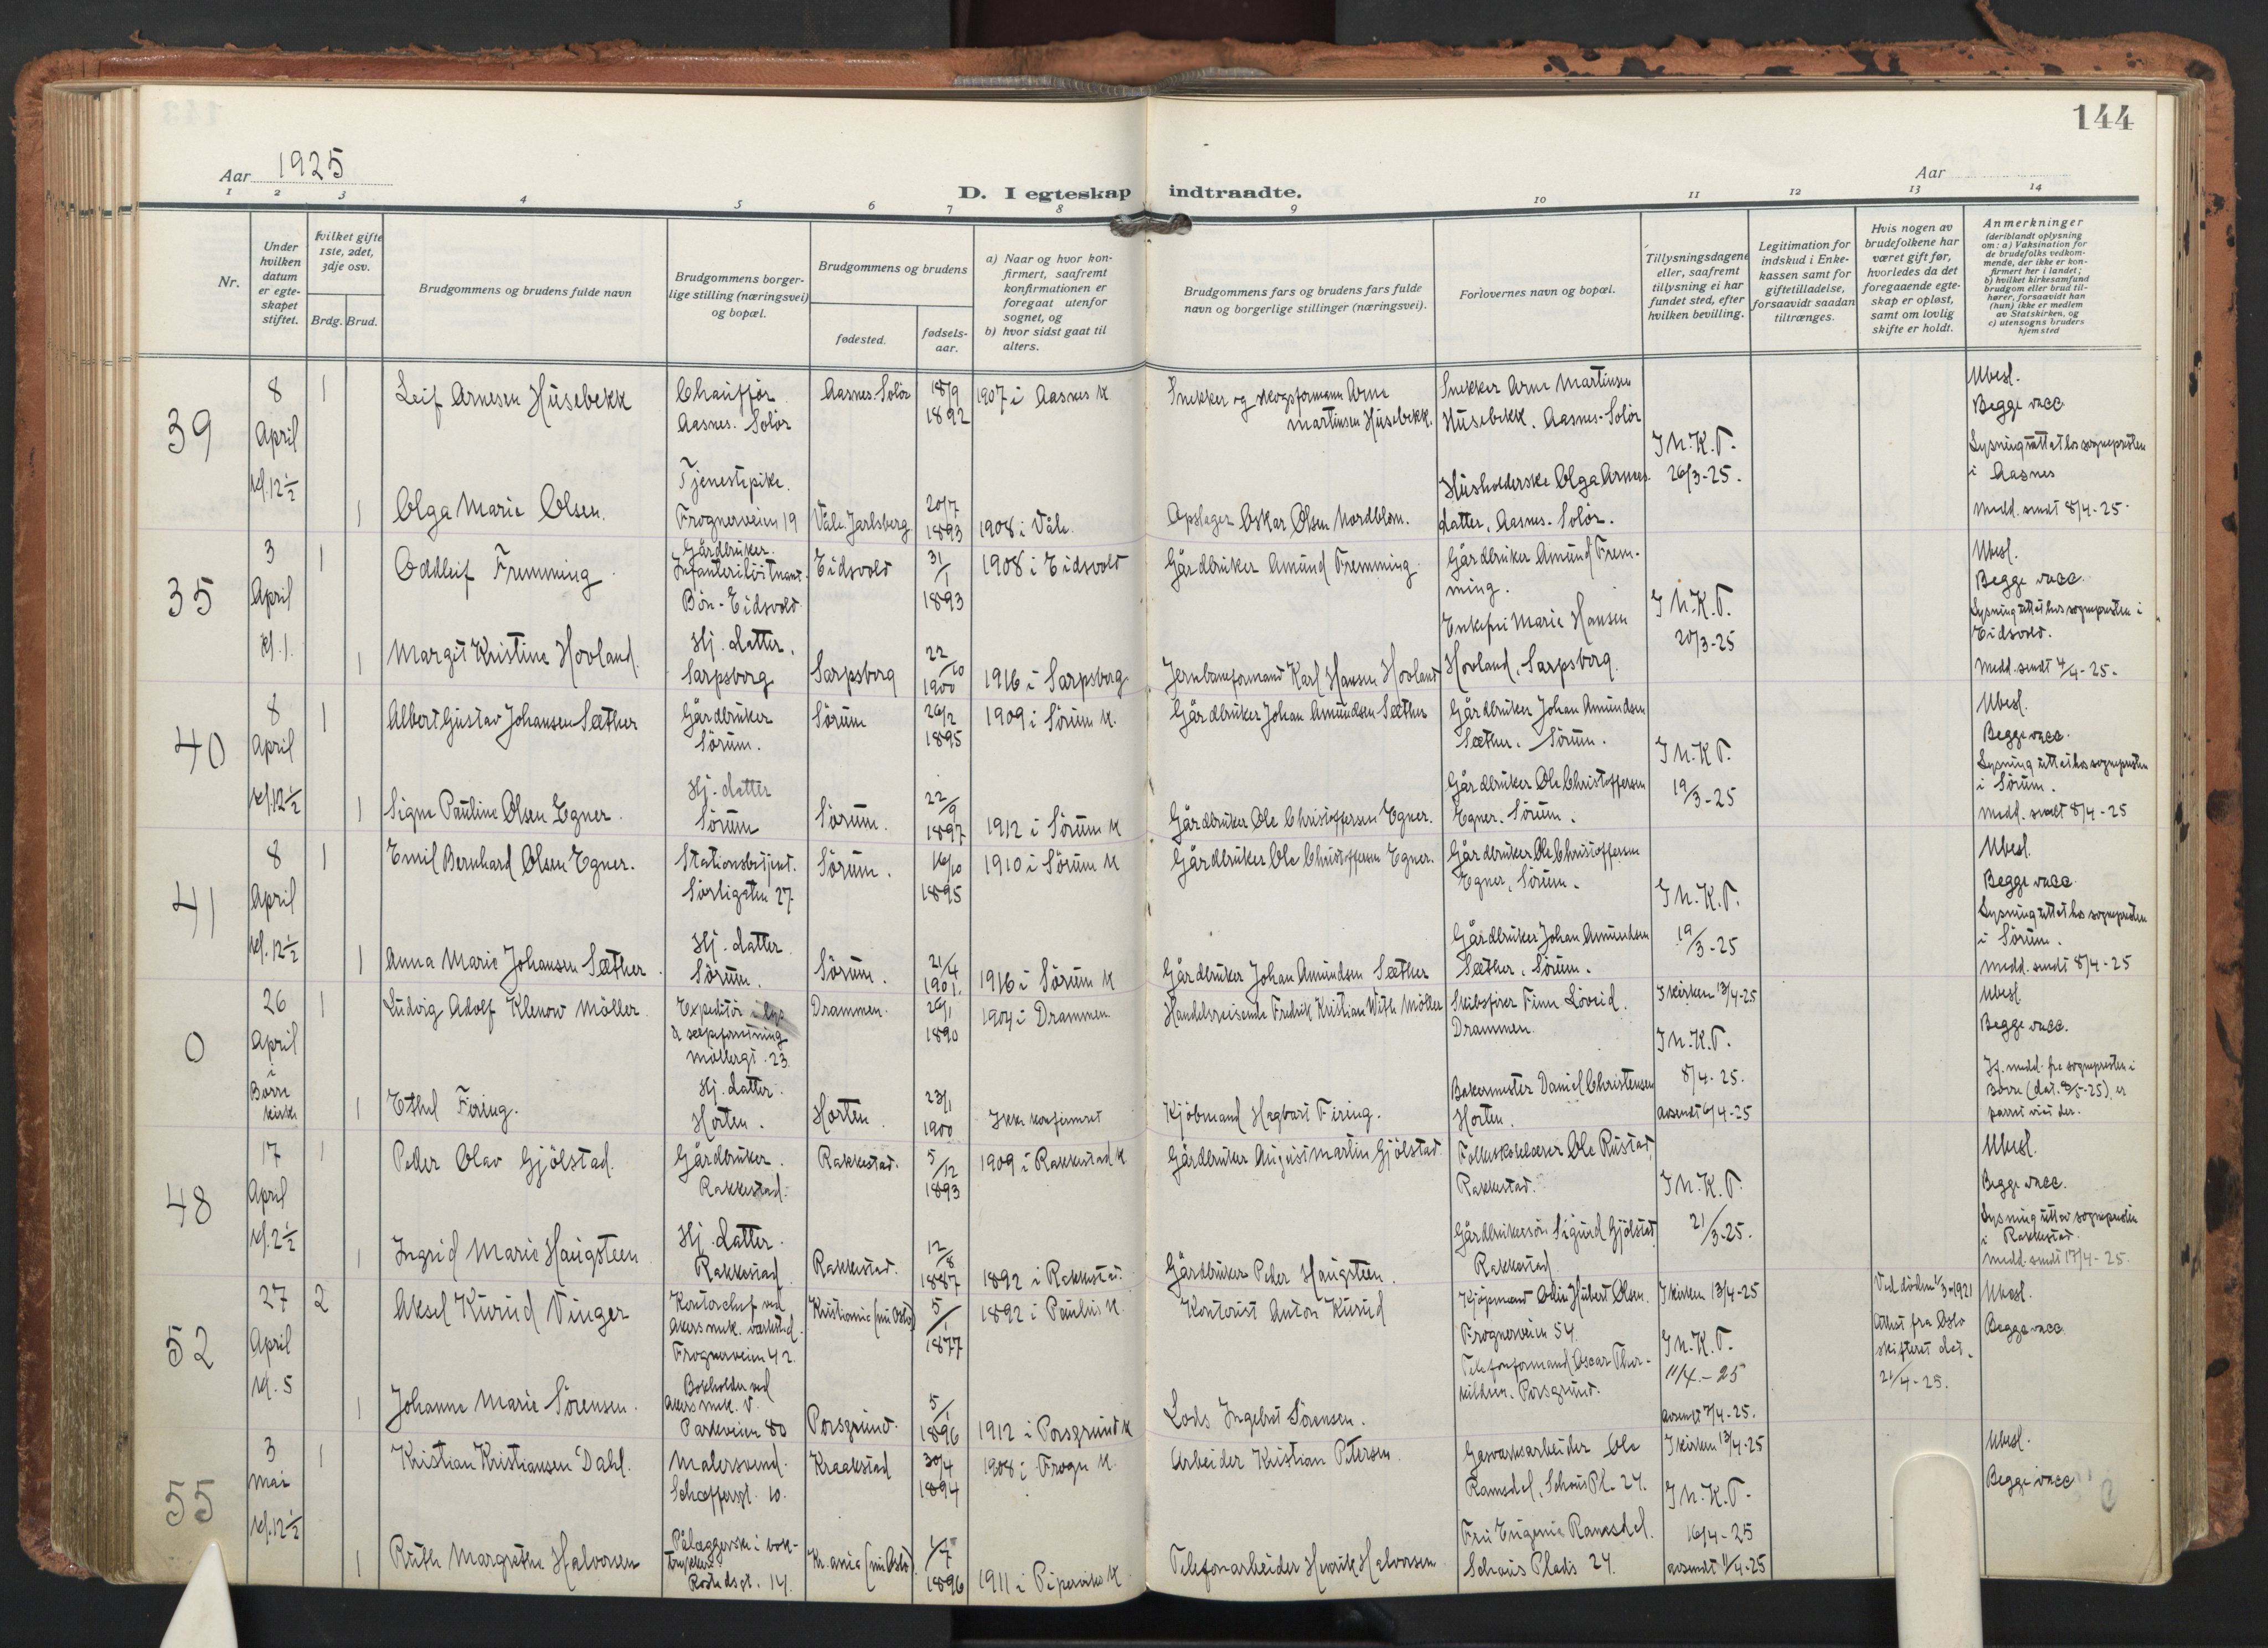 144
Aar 1925
Aar
D. I egteskap indtraadte.
1 2 3 4 5 6 7 8 9 10 11 12 13 14
Nr.
Under hvilken datum er egteskapet stiftet.
hvilket gifte 1ste, 2det, 3dje osv.
Brdg. Brud.
Brudgommens og brudens fulde navn
Brudgommens borgerlige stilling (næringsvei) og bopæl.
Brudgommens og brudens
fødested.
fødselsaar.
a) Naar og hvor konfirmert, saafremt konfirmationen er foregaat utenfor sognet, og
b) hvor sidst gaat til alters.
Brudgommens fars og brudens fars fulde navn og borgerlige stillinger (næringsvei).
Forlovernes navn og bopæl.
Tillysningsdagene eller, saafremt tillysning ei har fundet sted, efter hvilken bevilling.
Legitimation for indskud i Enkekassen samt for giftetilladelse, forsaavidt saadan tiltrænges.
Hvis nogen av brudefolkene har været gift før, hvorledes da det foregaaende egteskap er opløst, samt om lovlig skifte er holdt.
Anmerkninger
(deriblandt oplysning om: a) Vaksination for de brudefolks vedkommende, der ikke er konfirmert her i landet;
b) hvilket kirkesamfund brudgom eller brud tilhører, forsaavidt han (hun) ikke er medlem av Statskirken, og
c) utensogns bruders hjemsted
39
8 April kl. 12½
1 Leif Arnesen Husebekk
Chauffør. Aasnes. Solør
Aasnes. Solør
18/9 1892
1907 i Aasnes k
Snekker og skogsformann Arne Martinsen Husebekk.
Snekker Arne Martinsen Husebekk. Aasnes-Solør
J N. K. T. 26/3-25.
Ubesl. Begge vacc
Lysning utt. at hos sognepresten i Aasnes
Medd. sendt 8/4-25.
1 Olga Marie Olsen.
Tjenestepike. Frognerveien 19
Våle. Jarlsberg.
20/7 1893
1908 i Våle.
Opslager Oskar Olsen Nordblom.
Husholderske Olga Arnesdatter, Aasnes-Solør.
35
3 April kl. 1.
1 Oddleif Fremming
Gårdbruker. Infanteriløitnant. Bøn-Eidsvold
Eidsvold
31/1 1893
1908 i Eidsvold
Gårdbruker Amund Fremming
Gårdbruker Amund Fremming.
J N. K. T. 20/3-25
Ubesl. Begge vacc.
Lysning utt. at hos sognepresten i Eidsvold.
Medd. sendt 4/4-25.
1 Margit Kristine Hovland.
Hj. datter. Sarpsborg
Sarpsborg
22/10 1900
1916 i Sarpsborg
Jernbaneformand Karl Hansen Hovland
Enkefru Marie Hansen Hovland, Sarpsborg.
40
8 April kl. 12½
1 Albert Gustav Johansen Sæther
Gårdbruker Sørum.
Sørum
26/2 1895
1909 i Sørum k.
Gårdbruker Johan Amundsen Sæther
Gårdbruker Johan Amundsen Sæther. Sørum.
J N. K. T. 19/3-25
Ubesl. Begge vacc.
Lysning utt. at hos sognepresten i Sørum.
Medd. sendt 8/4-25
1 Signe Pauline Olsen Egner.
Hj. datter Sørum
Sørum.
22/9 1897
1912 i Sørum k
Gårdbruker Ole Christoffersen Egner.
Gårdbruker Ole Christoffersen Egner. Sørum.
41
8 April kl. 12½
1 Emil Bernhard Olsen Egner.
Stationsbetjent. Sørligaten 27
Sørum.
16/10 1895
1910 i Sørum k
Gårdbruker Ole Christoffersen Egner.
Gårdbruker Ole Christoffersen Egner, Sørum.
J N. K. T. 19/3-25
Ubesl. Begge vacc.
Lysning utt. at hos sognepresten i Sørum.
Medd. sendt 8/4-25
1 Anna Marie Johansen Sæther.
Hj. datter. Sørum.
Sørum.
21/4 1901.
1916 i Sørum k
Gårdbruker Johan Amundsen Sæther
Gårdbruker Johan Amundsen Sæther, Sørum.
0
26 April i Borre kirke
1 Ludvig Adolf Klenow Møller
Expeditør i lys & sæpeforretning Møllergt. 23
Drammen.
26/1 1890
1904 i Drammen
Handelsreisende Fredrik Kristian With Møller
Skibsfører Finn Løvrid. Drammen.
I kirken 13/4-25
J N. K. T. 8/4-25. avsendt 6/4-25
Ubesl. Begge vacc.
Jf. medd. fra sognepresten i Borre (dat. 8/5-25), er parret viet der.
1 Ethel Fering.
Hj. datter. Horten.
Horten.
23/1 1900
Ikke konfirmert
Kjøbmand Hagbart Firing.
Bakermester Daniel Christensen Horten.
48
17 April kl. 2½
1 Peder Olav Gjølstad.
Gårdbruker. Rakkestad.
Rakkestad.
5/12 1893
1909 i Rakkestad k
Gårdbruker August Martin Gjølstad.
Folkeskolelærer Ole Rustad, Rakkestad.
J N. K. T. 21/3-25.
Ubesl. Begge vacc.
Lysning utt. av sognepresten i Rakkestad.
Medd. sendt 17/4-25.
1 Ingrid Marie Haugsteen
Hj. datter. Rakkestad
Rakkestad.
12/8 1887
1892 i Rakkestad.
Gårdbruker Peder Haugsteen.
Gårdbrukersøn Sigurd Gjølstad, Rakkestad.
52
27 April kl. 5
2 Aksel Kurud Vinger
Kontorchef ved Akers mek. værksted. Frognerveien 42.
Kristiania (nu Oslo)
5/1 1877
1892 i Paulus k.
Kontorist Anton Kurud
Kjøpmand Odin Hubert Olsen. Frognerveien 54.
I kirken 13/4-25
J N. K. T. 11/4-25 avsendt 7/4-25.
Ved døden 1/3-1921
Attest fra Oslo skifteret dat. 21/4-25.
Ubesl. Begge vacc
1 Johanne Marie Sørensen.
Bokholder ved Akers mek. V. Parkveien 80
Porsgrund.
5/1 1896
1912 i Porsgrund k
Lods Ingebret Sørensen.
Telefonformand Oscar Thorkildsen. Porsgrund.
55
3 Mai kl. 12½
1 Kristian Kristiansen Dahl.
Malersvend. Schæffersgt. 10.
Kraakstad
30/4 1894
1908 i Frogn k.
Arbeider Kristian Petersen.
Gasverksarbeider Ole Ramsdal, Schous Pl. 24.
I kirken 13/4-25
J N. K. T. 16/4-25 avsendt 11/4-25
Ubesl. Begge vacc
1 Ruth Margrethe Halvorsen
Pålæggerske i boktrykkeri Rostedsgt. 14.
Kr.ania (nu Oslo)
1/7 1896
1911 i Piperviks k
Telefonarbeider Henrik Halvorsen
Fru Eugenie Ramsdal. Schous Plads 24.